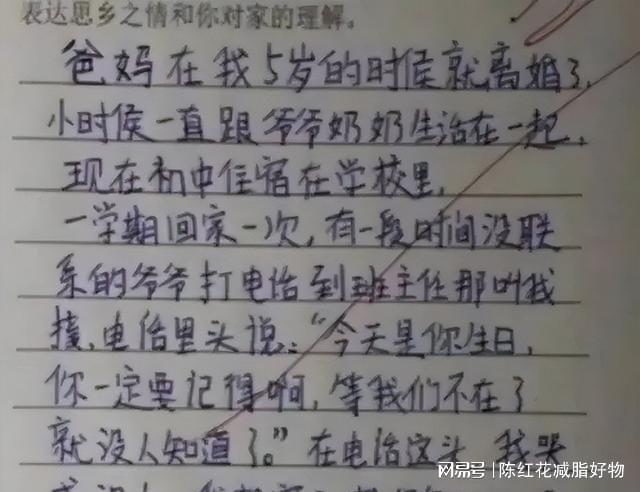 表达思乡之情和你对家的理解。
爸妈在我5岁的时候就离婚了,
小时侯一直跟爷爷奶奶生活在一起,
现在初中住宿在学校里,
一学期回家一次,有一段时间没联
系的爷爷打电话到班主任那叫我
接,电话里头说:“今天是你生日,
你一定要记得啊,等我们不在了
就没人知道了。”在电话这头 我哭
网易号 | 陈红花减脂好物